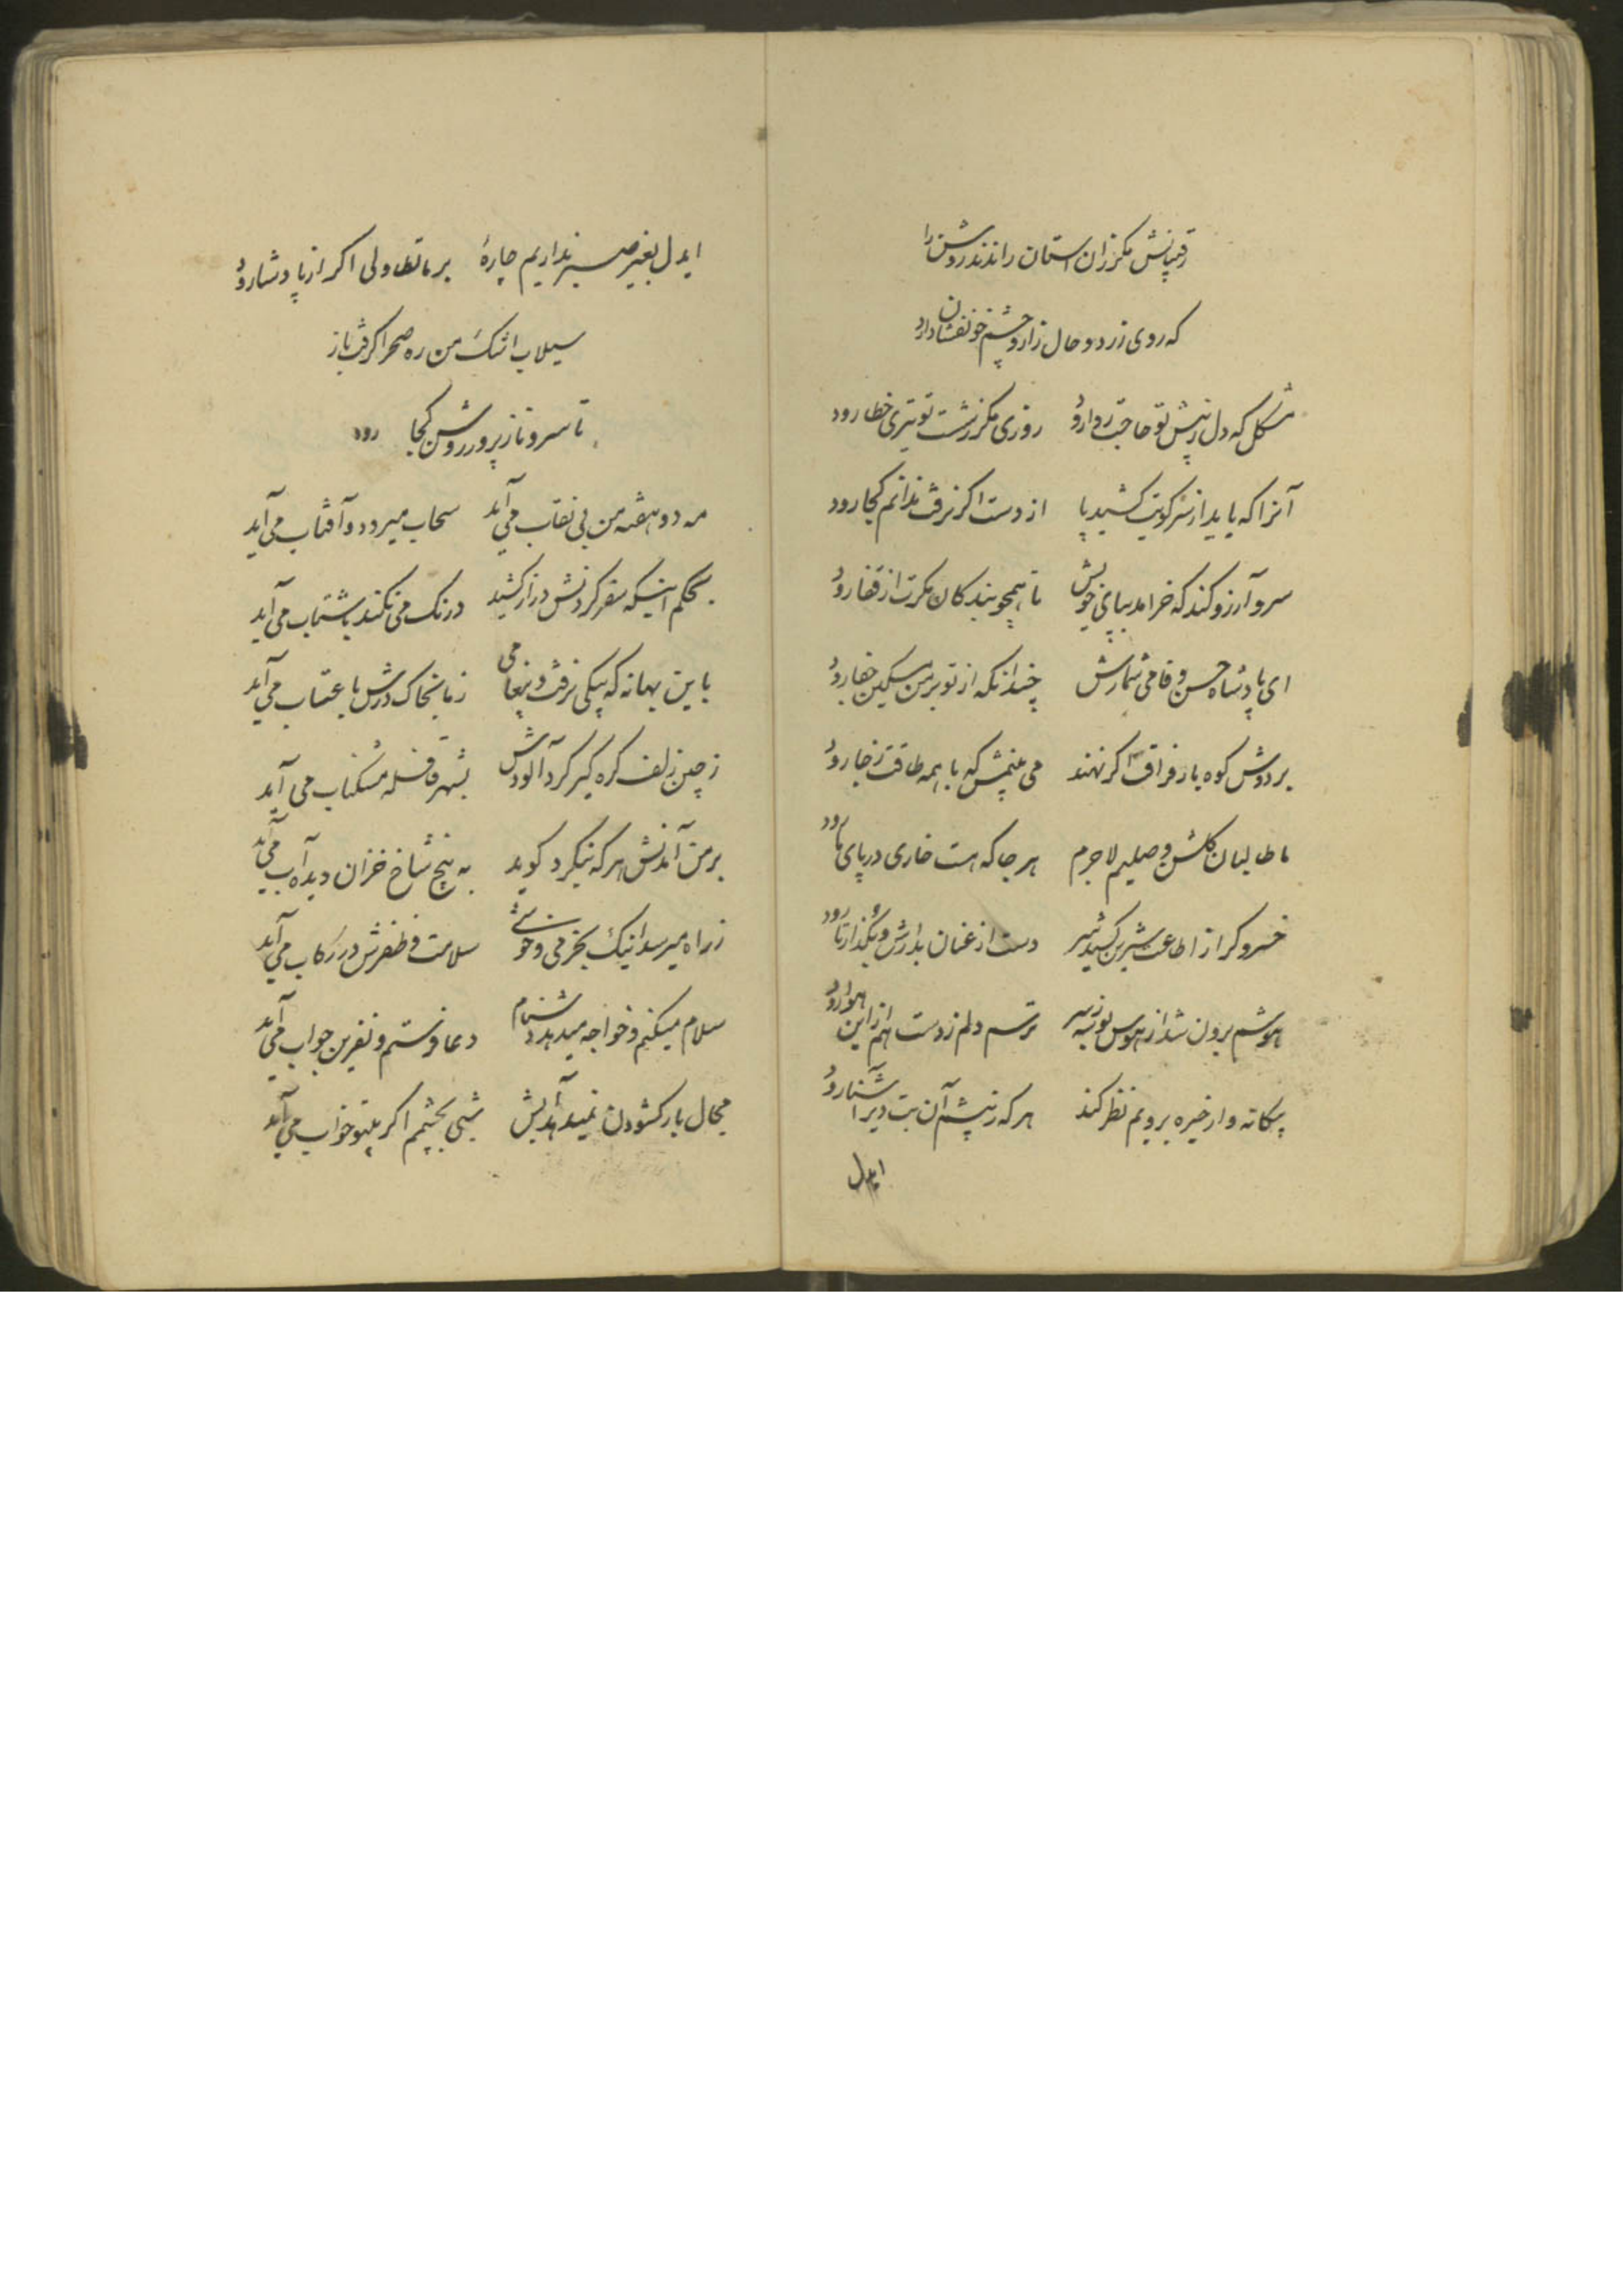 رقیبانش مگر زان آستان راندند روشن را
که روی زرد و حال زار و چشم خونفشان دارد
مشکل که دل ز پیش تو حاجت روا رود روزی مگر ز شست تو تیری خطا رود
آنرا که باید از سر کویت کشید پا از دست اگر نرفت ندانم کجا رود
سرو آرزو کند که خرامد بپای خویش تا همچو بندگان مگرت از قفا رود
ای پادشاه حسن وفا می شمارش چندانکه از تو بر من مسکین جفا رود
بر دوش کوه بار فراقت اگر نهند می بینمش که با همه طاقت ز جا رود
ما طالبان گلشن وصلیم لاجرم هر جا که هست خاری در پای ما رود
خسرو گر از اطاعت شیرین کشید سر دست از عنان بدارش و بگذار تا رود
هوشم برون شد از هوس بوسه ز سر ترسم دلم ز دست هم از این هوا رود
بیگانه وار خیره برویم نظر کند هر که ز پیش آن بت دیر آشنا رود
ایدل
ایدل بغیر صبر نداریم چارهٔ بر ما تطاولی اگر از پادشا رود
سیلاب اشک من ره صحرا گرفت باز
تا سرو ناز پرور روشن کجا رود
مه دو هفته من بی نقاب می آید سحاب میرود و آفتاب می آید
بحکم اینکه سفر کردنش دراز کشید درنگ می نکند باشتاب می آید
باین بهانه که پیکی نرفت و پیغامی ز ما بخاک درش با عتاب می آید
ز چین زلف گره گیر گرد آلودش بشهر قافله مشکناب می آید
بر من آمدنش هر که بنگرد گوید به بیخ شاخ خزان دیده آب می آید
ز راه میرسد اینک بخرمی و خوشی سلامت و ظفرش در رکاب می آید
سلام میکنم و خواجه میدهد دشنام دعا فرستم و نفرین جواب می آید
مجال بار گشودن نمیدهد آبش شبی بچشمم اگر بیتو خواب می آید